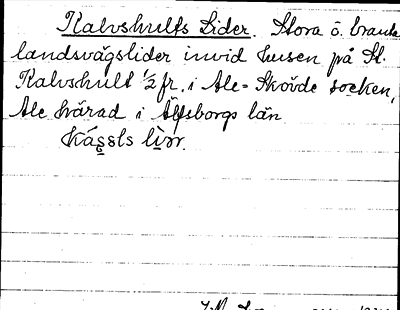 Kalvshults Lider. Stora o. branta
landsvägslider invid husen på St.
Kalvshult 1/2 fr. i Ale-Skövde socken,
Ale härad i Älfsborgs län